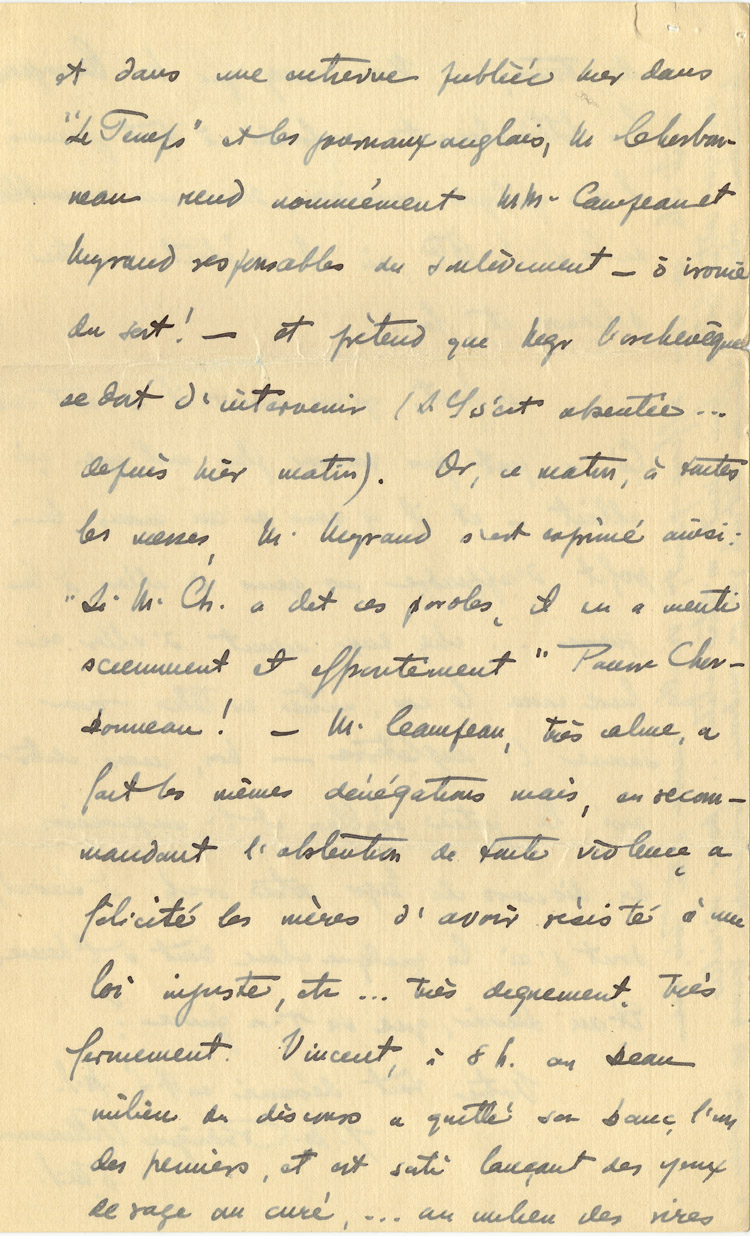 et dans une entrevue publiée hier dans
"Le Temps" et les journaux anglais, M Charbon-
neau rend nommément MM. Campeau et
Myrand responsables du soulèvement — ô ironie
du sort! — et prétend que Mgr l'archevêque
se doit d'intervenir (S. G. s'est absentée...
depuis hier matin). Or, ce matin, à toutes
les messes, M. Myrand s'est exprimé ainsi:
"Si M. Ch. a dit ces paroles, il en a menti
sciemment et effrontément" Pauvre Char-
bonneau! — M. Campeau, très calme, a
fait les mêmes dénégations mais, en recom-
mandant l'abstention de toute violence, a
félicité les mères d'avoir résisté à une
loi injuste, etc ... très dignement, très
fermement. Vincent, à 8 h. au beau
milieu du discours a quitté son banc, l'un
des premiers, et est sorti lançant des yeux
de rage au curé, ... au milieu des rires